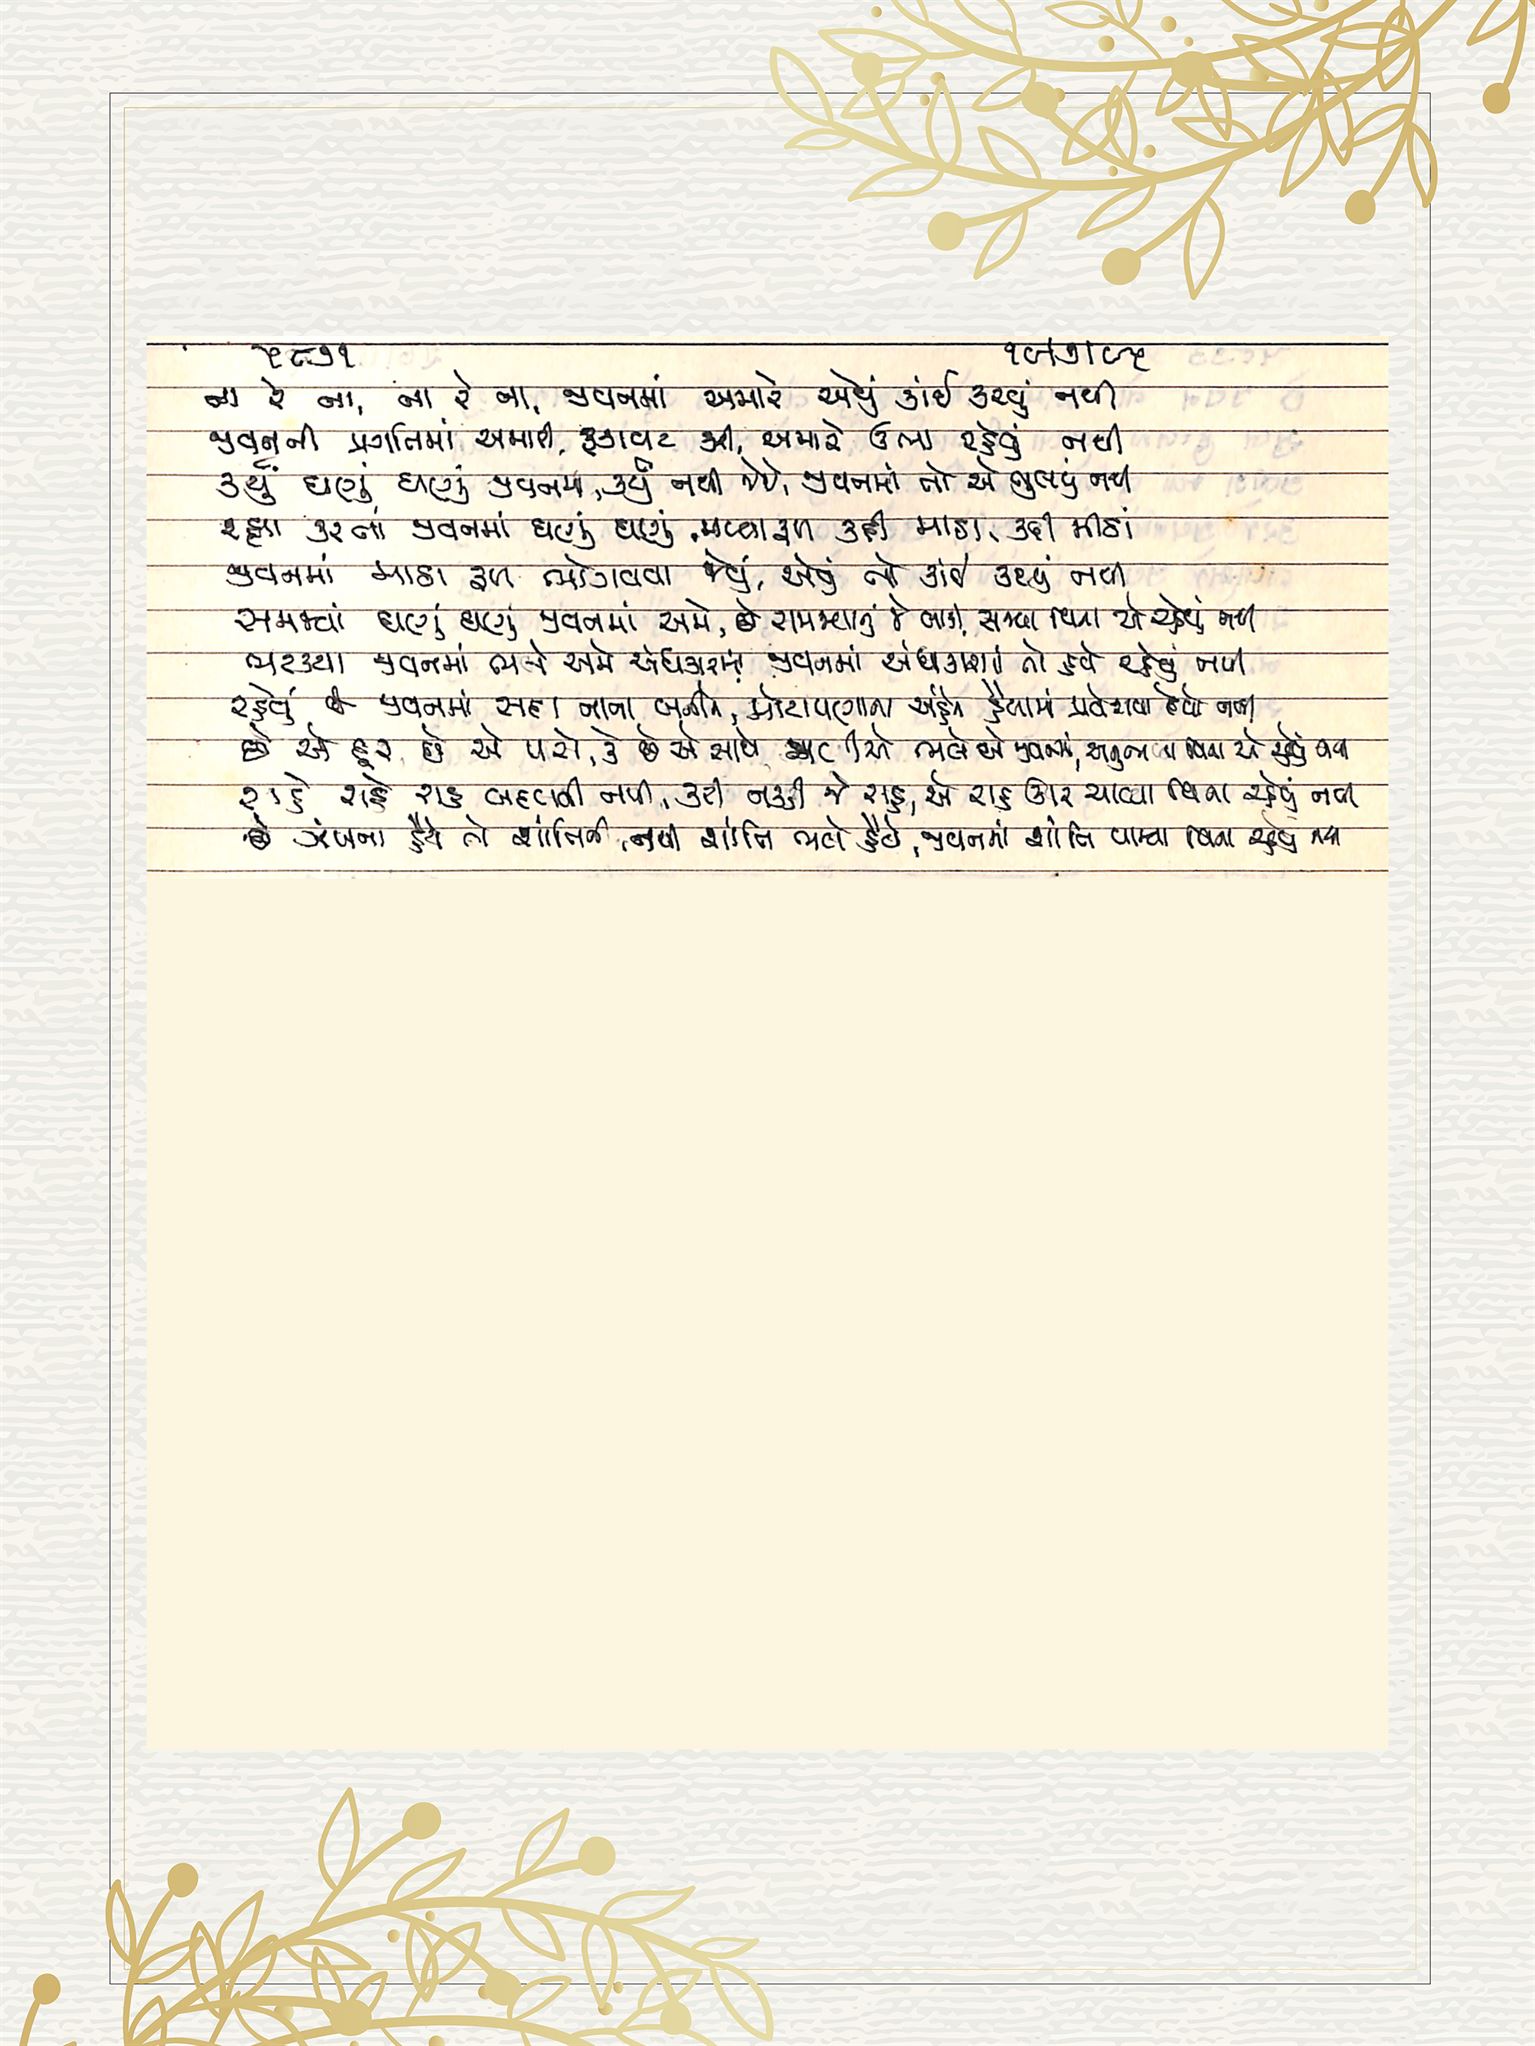 ૫૮૭૧
ના રે ના, ના રે ના, જીવનમાં અમારે એવું કાંઈ કરવું નથી
જીવનની પ્રગતિમાં અમારી, રૂકાવટ કરી, અમારે ઉભા રહેવું નથી
કર્યું ઘણું ઘણું જીવનમાં, કર્યું નથી જીવનમાં તો એ ભુલવું નથી
રહ્યા કરતાં જીવનમાં ઘણું ઘણું, મળ્યા ફળ કદી માઠા, કદી મીઠાં
જીવનમાં માઠા ફળ ભોગવવા જેવું, એવું તો કાંઈ કરવું નથી
સમજ્યાં ઘણું ઘણું જીવનમાં અમે, છે સમજવાનું જે બાકી, સમજ્યા વિના એ રહેવું નથી
ભટક્યા જીવનમાં ભલે અમે અંધકારમાં, જીવનમાં અંધકારમાં તો હવે રહેવું નથી
રહેવું છે જીવનમાં સદા નાના બનીને, મોટાપણાના અહંને હૈયામાં પ્રવેશવા દેવો નથી
છે એ દૂર, છે એ પાસે, કે છે એ સાથે ભલે એ જીવનમાં, અનુભવ્યા વિના એ રહેવું નથી
રાહે રાહે રાહ બદલવી નથી, કરી નક્કી જે રાહ, એ રાહ ઊપર ચાલ્યા વિના રહેવું નથી
છે ઝંખના હૈયે તો શાંતિની, નથી શાંતિ ભલે હૈયે, જીવનમાં શાંતિ પામ્યા વિના રહેવું નથી